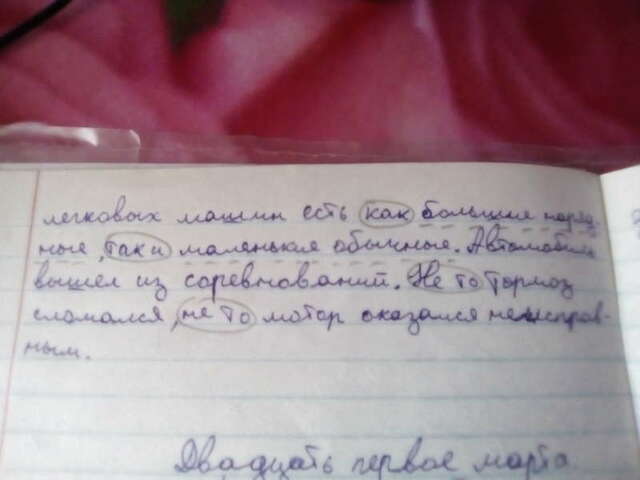 легковых машин есть как большие наряд-
ные, так и маленькие обычные. Автомобиль
вышел из соревнований. Не то тормоз
сломался, не то мотор оказался неисправ-
ным.
Двадцать первое марта.